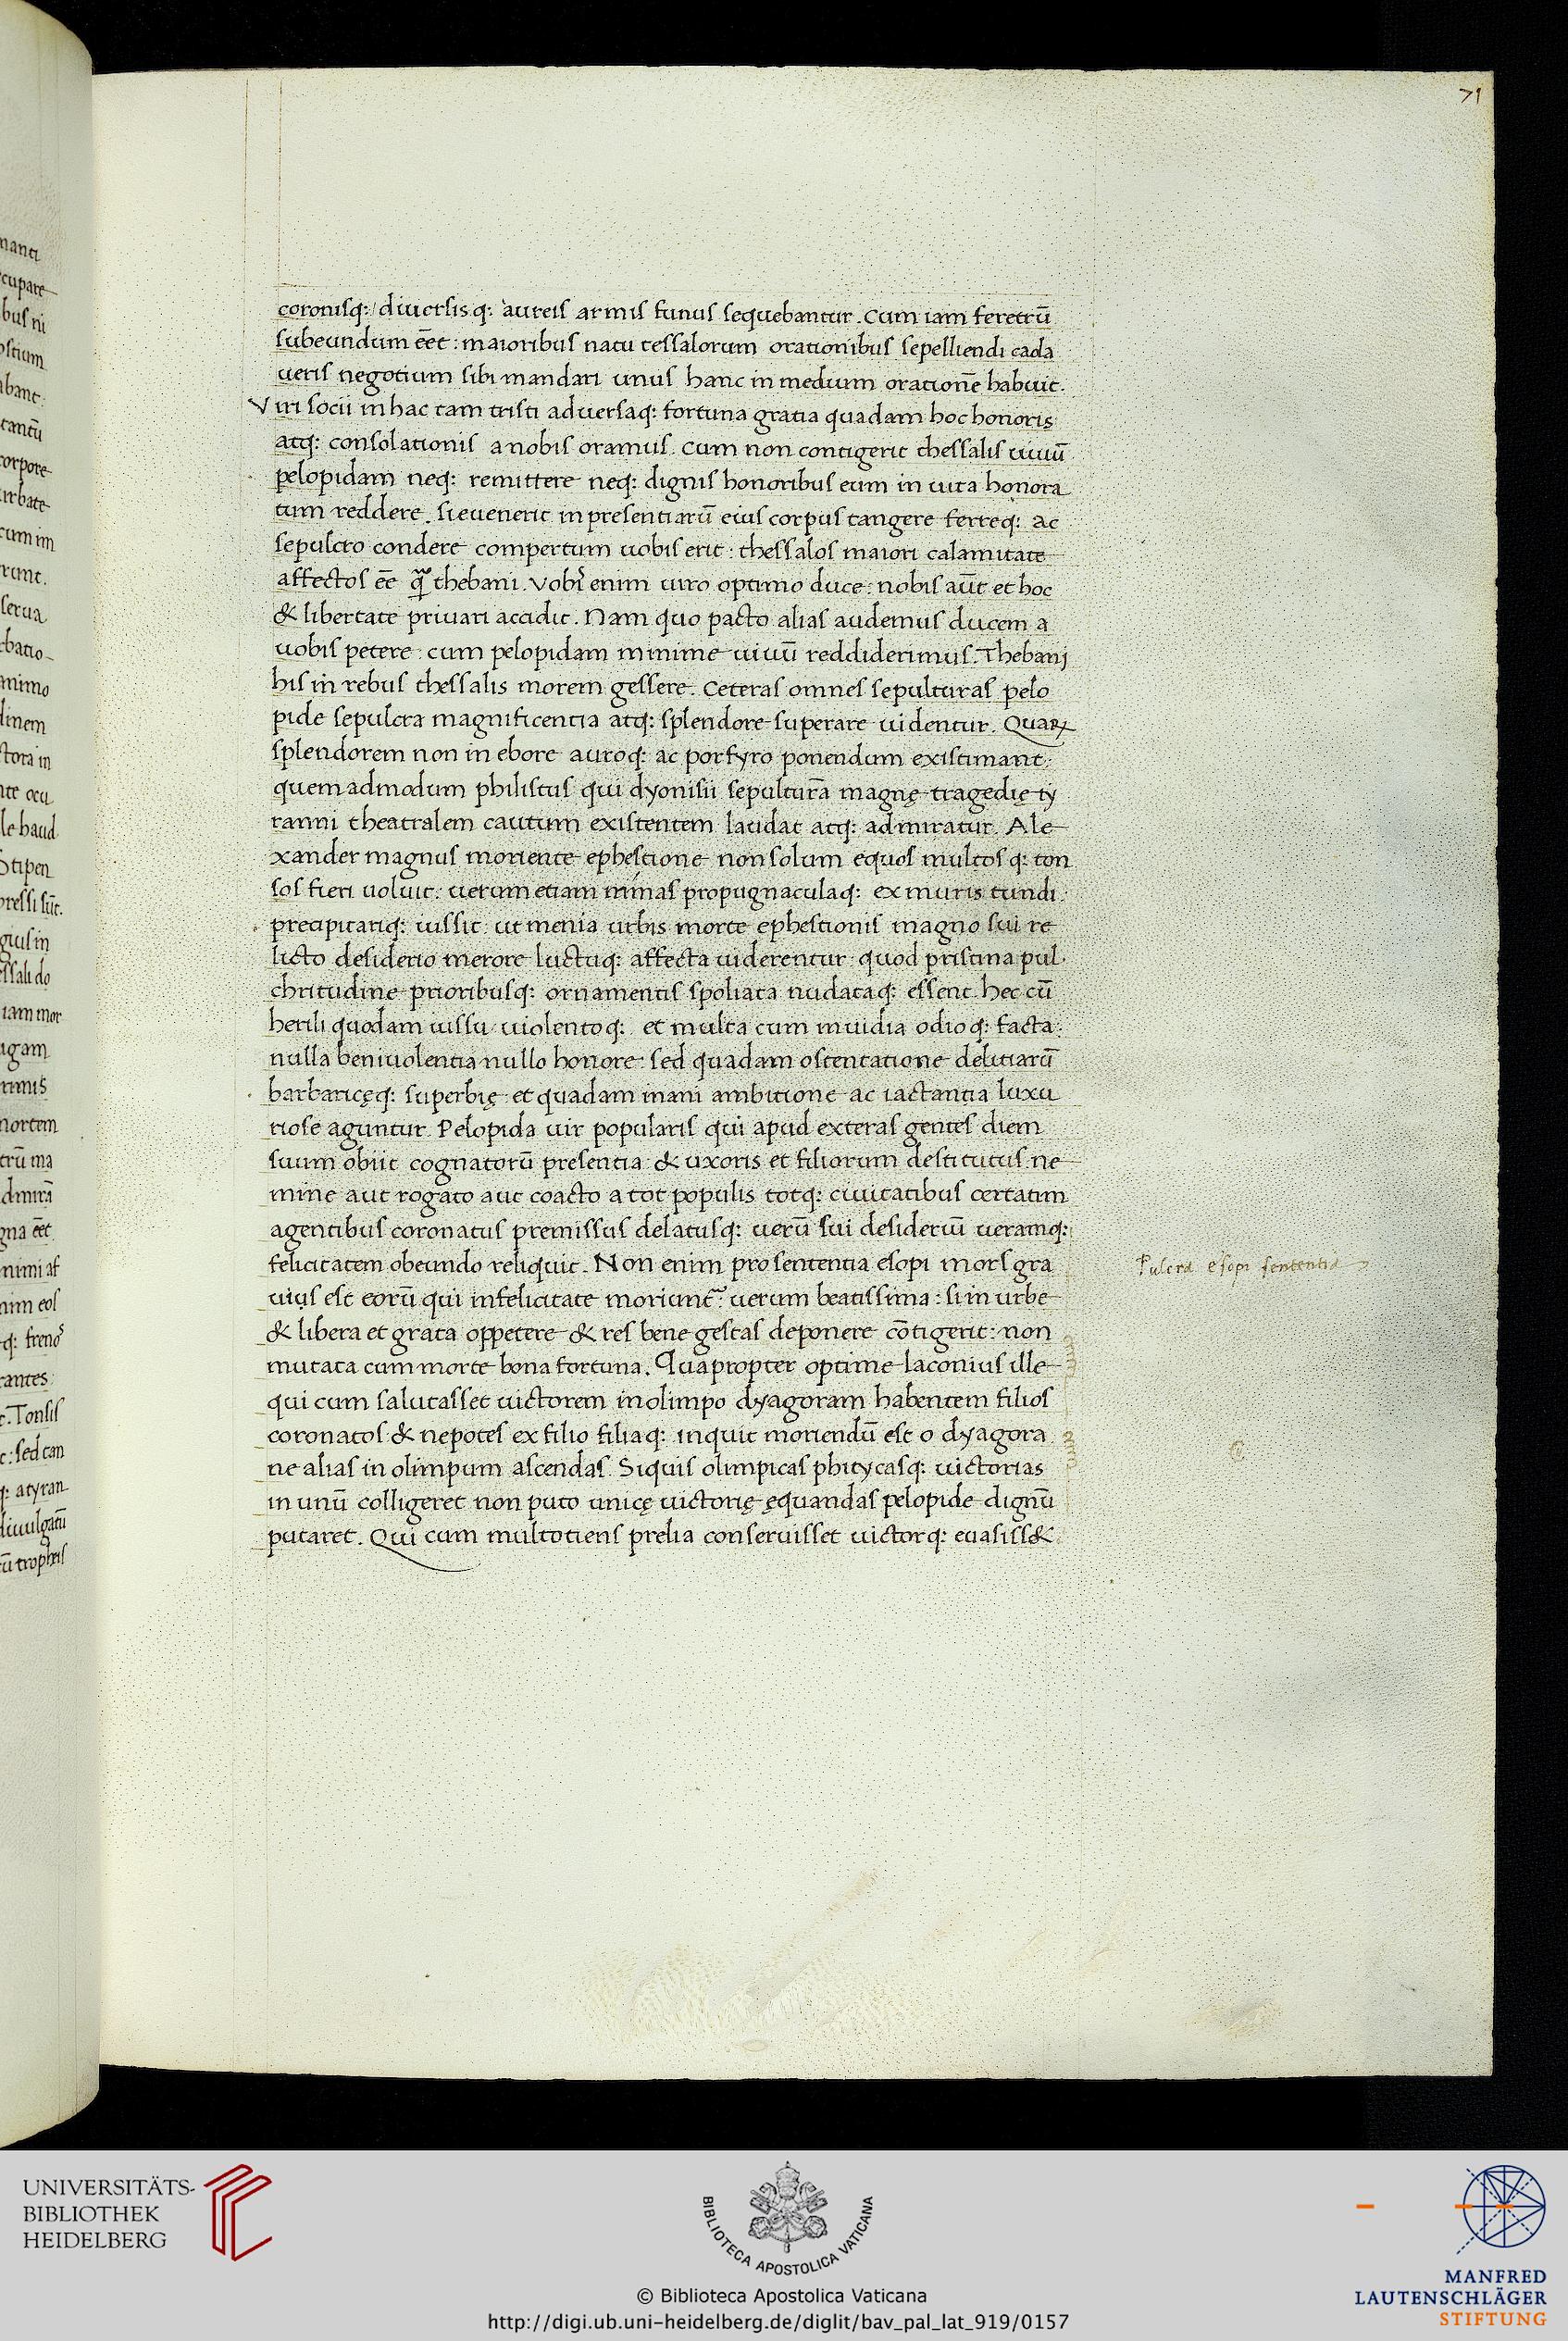 71
coronisq: diuersisq: aureis armis funus sequebantur. Cum iam feretrū
subeundum eēt: maioribus natu tessalorum orationibus sepelliendi cada
ueris negotium sibi mandari unus hanc in medium orationē habuit.
Viri socii in hac tam tristi aduersaq: fortuna gratia quadam hoc honoris
atq: consolationis a nobis oramus. Cum non contigerit thessalis uiuū
pelopidam neq: remittere neq: dignis honoribus eum in uita honora
tum reddere. si euenerit in presentiarū eius corpus tangere ferreq: ac
sepulcro condere compertum uobis erit: thessalos maiori calamitate
affectos eē q̄ thebani. Vobis enim uiro optimo duce: nobis aūt et hoc
& libertate priuari accidit. Nam quo pacto alias audemus ducem a
uobis petere: cum pelopidam minime uiuū reddiderimus. Thebani
his in rebus thessalis morem gessere. Ceteras omnes sepulturas pelo
pide sepulcra magnificentia atq: splendore superare uidentur. Quaꝝ
splendorem non in ebore auroq: ac porfyro ponendum existimant:
quemadmodum philistus qui dyonisii sepulturā magnę tragedię ty
ranni theatralem cautum existentem laudat atq: admiratur. Ale
xander magnus moriente ephestione non solum equos multosq: ton
sos fieri uoluit: uerum etiam minas propugnaculaq: ex muris fundi
precipitariq: iussit: ut menia urbis morte ephestionis magno sui re
licto desiderio merore luctuq: affecta uiderentur: quod pristina pul
chritudine prioribusq: ornamentis spoliata nudataq: essent. hec cū
herili quodam iussu uiolentoq: et multa cum inuidia odioq: facta:
nulla beniuolentia nullo honore: sed quadam ostentatione delitiarū
barbaricęq: superbię: et quadam inani ambitione ac iactantia luxu
riose aguntur. Pelopida uir popularis qui apud exteras gentes diem
suum obiit cognatorū presentia & uxoris et filiorum destitutus: ne
mine aut rogato aut coacto a tot populis totq: ciuitatibus certatim
agentibus coronatus premissus delatusq: uerū sui desideriū ueramq:
felicitatem obeundo reliquit. Non enim pro sententia esopi mors gra
uius est eorū qui infelicitate moriunt᷑: uerum beatissima: si in urbe
& libera et grata oppetere & res bene gestas deponere cōtigerit: non
mutata cum morte bona fortuna. Quapropter optime laconius ille
qui cum salutasset uictorem in olimpo dyagoram habentem filios
coronatos & nepotes ex filio filiaq: inquit moriendū est o dyagora
ne alias in olimpum ascendas. Siquis olimpicas phitycasq: uictorias
in unū colligeret non puto unicę uictorię ęquandas pelopide dignū
putaret. Qui cum multotiens prelia conseruisset uictorq: euasiss&
Pulcra esopi sententia
UNIVERSITÄTS-
BIBLIOTHEK
HEIDELBERG
BIBLIOTECA APOSTOLICA VATICANA
© Biblioteca Apostolica Vaticana
http://digi.ub.uni-heidelberg.de/diglit/bav_pal_lat_919/0157
MANFRED
LAUTENSCHLÄGER
STIFTUNG